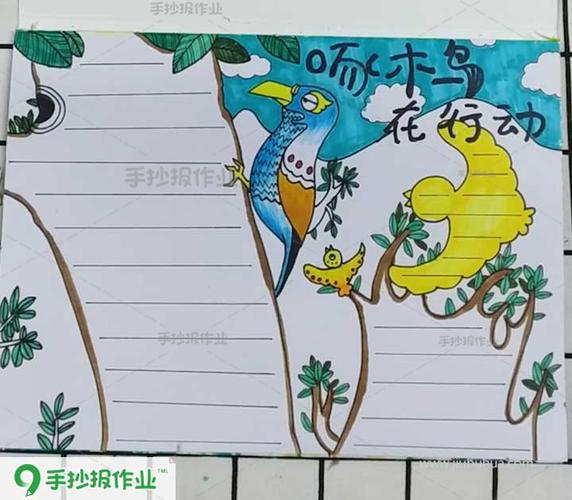 手抄报作业
啄木鸟
在行动
手抄报作业
手抄报作业
手抄报作业
手抄报作业™